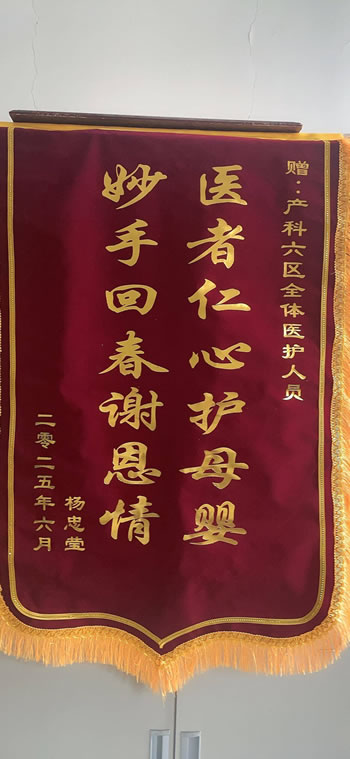 赠：产科六区全体医护人员
医者仁心护母婴
妙手回春谢恩情
杨忠莹
二零二五年六月